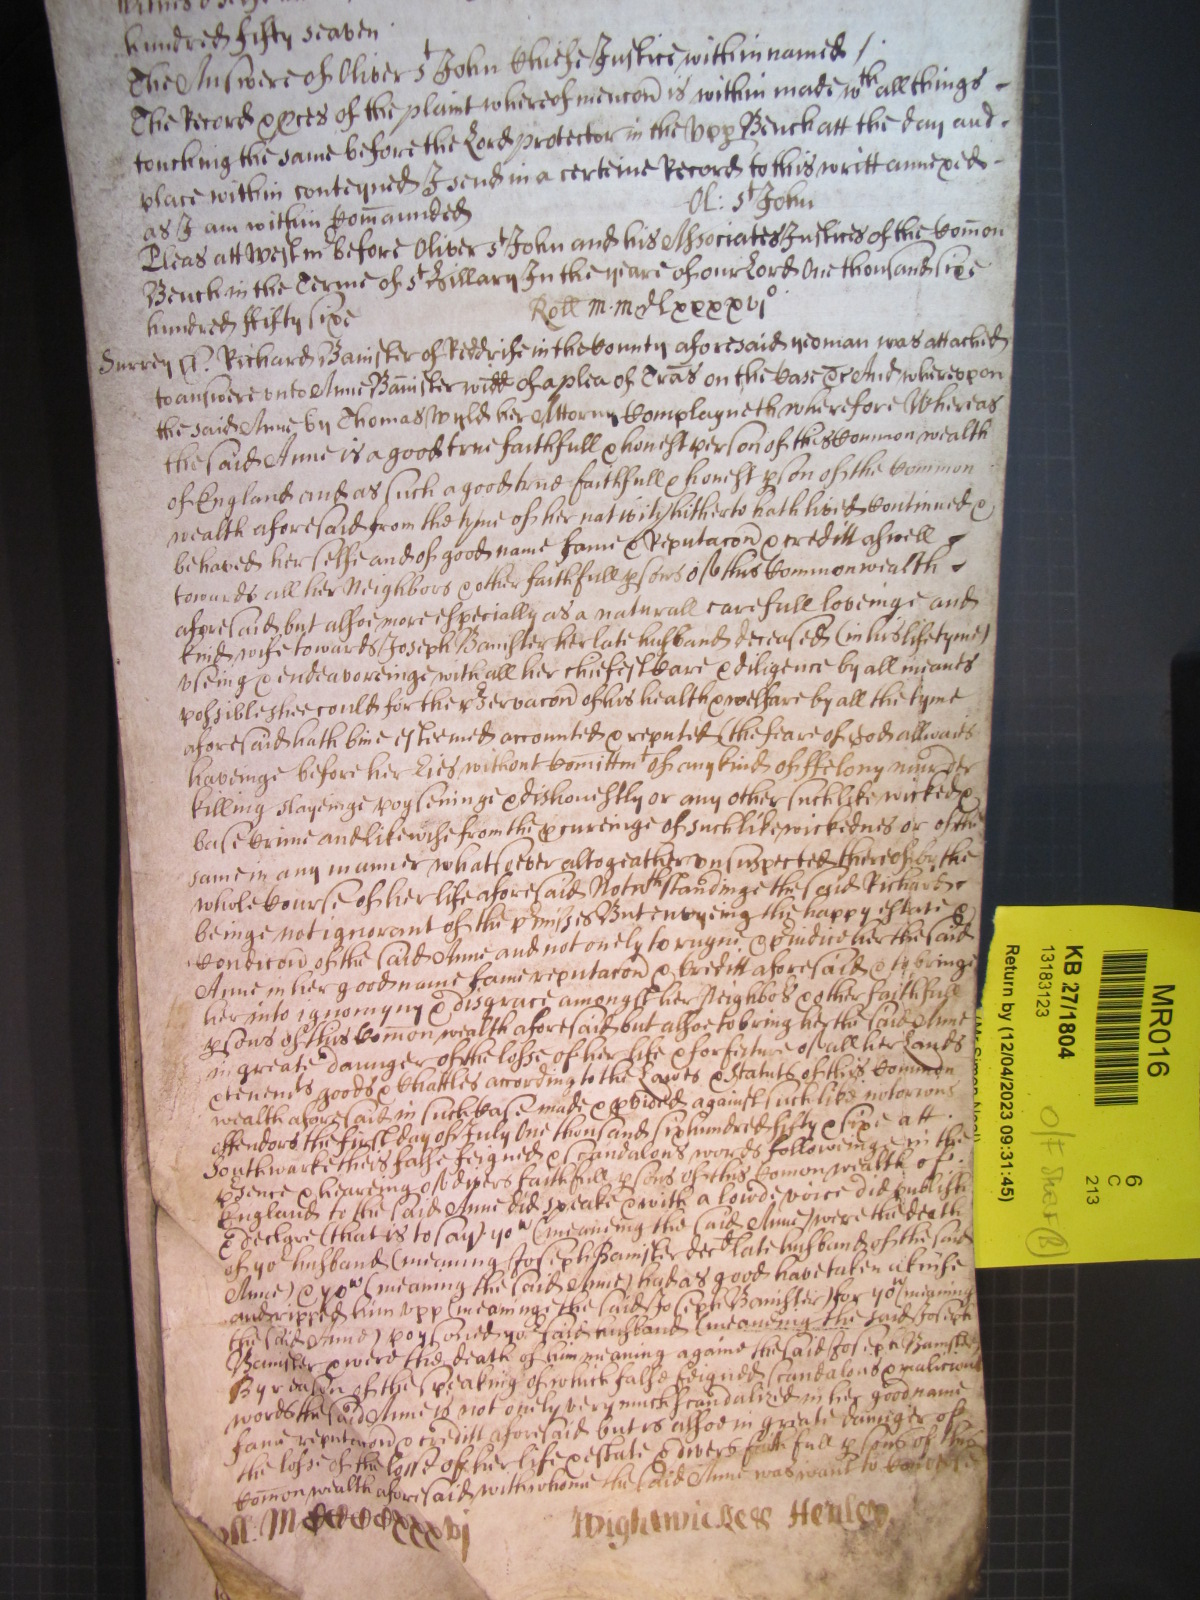 hundred fifty seaven
The Answere of Oliver St John Chiefe Justice within named /
The Record & pces of the plaint whereof mencon is within made wth all things
touching the same before the Lord protector in the Upp Bench att the day and
place within conteyned I send in a certeine Record to this writt annexed
as I am within Comaunded
Ol: St John
Pleas att Westm before Oliver St John and his Associates Justices of the Comon
Bench in the Terme of St Hillary In the yeare of our Lord One thousand sixe
hundred ffifty sixe
Roll m m dlxxxxvjo
Surrey ss. Richard Banister of Reddrife in the County aforesaid yeoman was attached
to answere unto Anne Banister widd of a plea of Tras on the Case &c And whereupon
the said Anne by Thomas Wyld her Attorny Complayneth wherefore Whereas
the said Anne is a good true faithfull & honest person of this Common wealth
of England and as such a good true faithfull & honest pson of the Common
wealth aforesaid from the tyme of her nativity hitherto hath lived Continued &
behaved her selfe and of good name fame & Reputacon & creditt aswell
towards all her Neighbors & other faithfull psons of this Common wealth
aforesaid but alsoe more especially as a naturall carefull loveinge and
kind wife towards Joseph Banister her late husband deceased (in his life tyme)
useing & endeavoreinge with all her chiefest Care & diligence by all meanes
possible shee could for the pservacon of his health & welfare by all the tyme
aforesaid hath bine esteemed accounted & reputed (the feare of God allwaies
haveinge before her Eies without Comittmt of any kind of ffelony murder
killing slayeinge poyseninge & dishonestly or any other such like wicked &
base Crime and likewise from the pcureinge of such like wickednes or of the
same in any manner whatsoever altogeather unsuspected thereof by the
whole Course of her life aforesaid Notwthstandinge the said Richard
beinge not ignorant of the pmisses But envyeing the happy estate &
Condicon of the said Anne and not onely to ruyne & piudice her the said
Anne in her good name fame reputacon & Creditt aforesaid & to bringe
her into ignomyny & disgrace amongst her Neighbors & other faithfull
psons of this Comon wealth aforesaid but alsoe to bring her the said Anne
in greate daunger of the losse of her life & forfeiture of all her Lands
& tenemts goods & Chattles according to the Lawes & Statuts of this Common
wealth aforesaid in such Case made & pvided against such like notorious
offendors the first day of July One thousand six hundred fifty & sixe att
Southwarke theis false feigned & scandalous words followeinge in the
psence & heareing of divers faithfull psons of this Comon wealth of
England to the said Anne did speake & with a lowde voice did publish
& declare (that is to say) yow (meaneing the said Anne) were the death
of yor husband (meaning Joseph Banister decd late husband of the said
Anne) & yow (meaning the said Anne) had as good have taken a knife
and ripped him upp (meaninge the said Joseph Banister) for yow (meaning
the said Anne) poysoned yor said husband (meaneing the said Joseph
Banister & were the death of him meaning againe the said Joseph Banister
By reason of the speaking of which false feigned scandalous & malicious
words the said Anne is not onely very much scandalized in her good name
fame reputacon & creditt aforesaid but is alsoe in greate daunger of
the losse of the losse of her life & estate & divers faithfull psons of this
Comon wealth aforesaid with whome the said Anne was want to
Wightwicke Henley
MR016
KB 27/1804
13183123
6
C
213
Return by (12/04/2023 09:31:45)